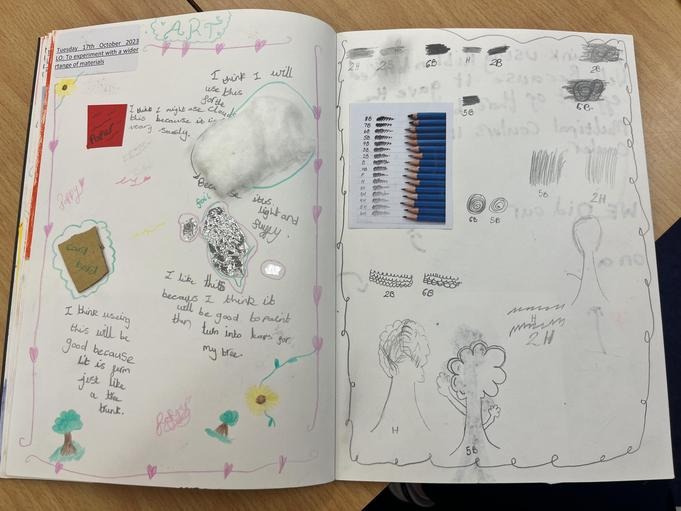 ART
Tuesday 17th October 2023
LO: To experiment with a wider
range of materials
I think I will
use this
for the
clouds
because it is
light and
fluffy.
Paper
I think I might use
this because it is
very sturdy.
Foil
Card
Board
I like this
because I think it
will be good to paint
then turn into leaves for
my tree.
I think using
this will be
good because
it is firm
just like
a tree
trunk.
2H
2S
6B
H
2B
2B
5B
6B
8B
7B
6B
5B
4B
3B
2B
B
5B
2H
6B
5B
2B
6B
H
2H
H
5B